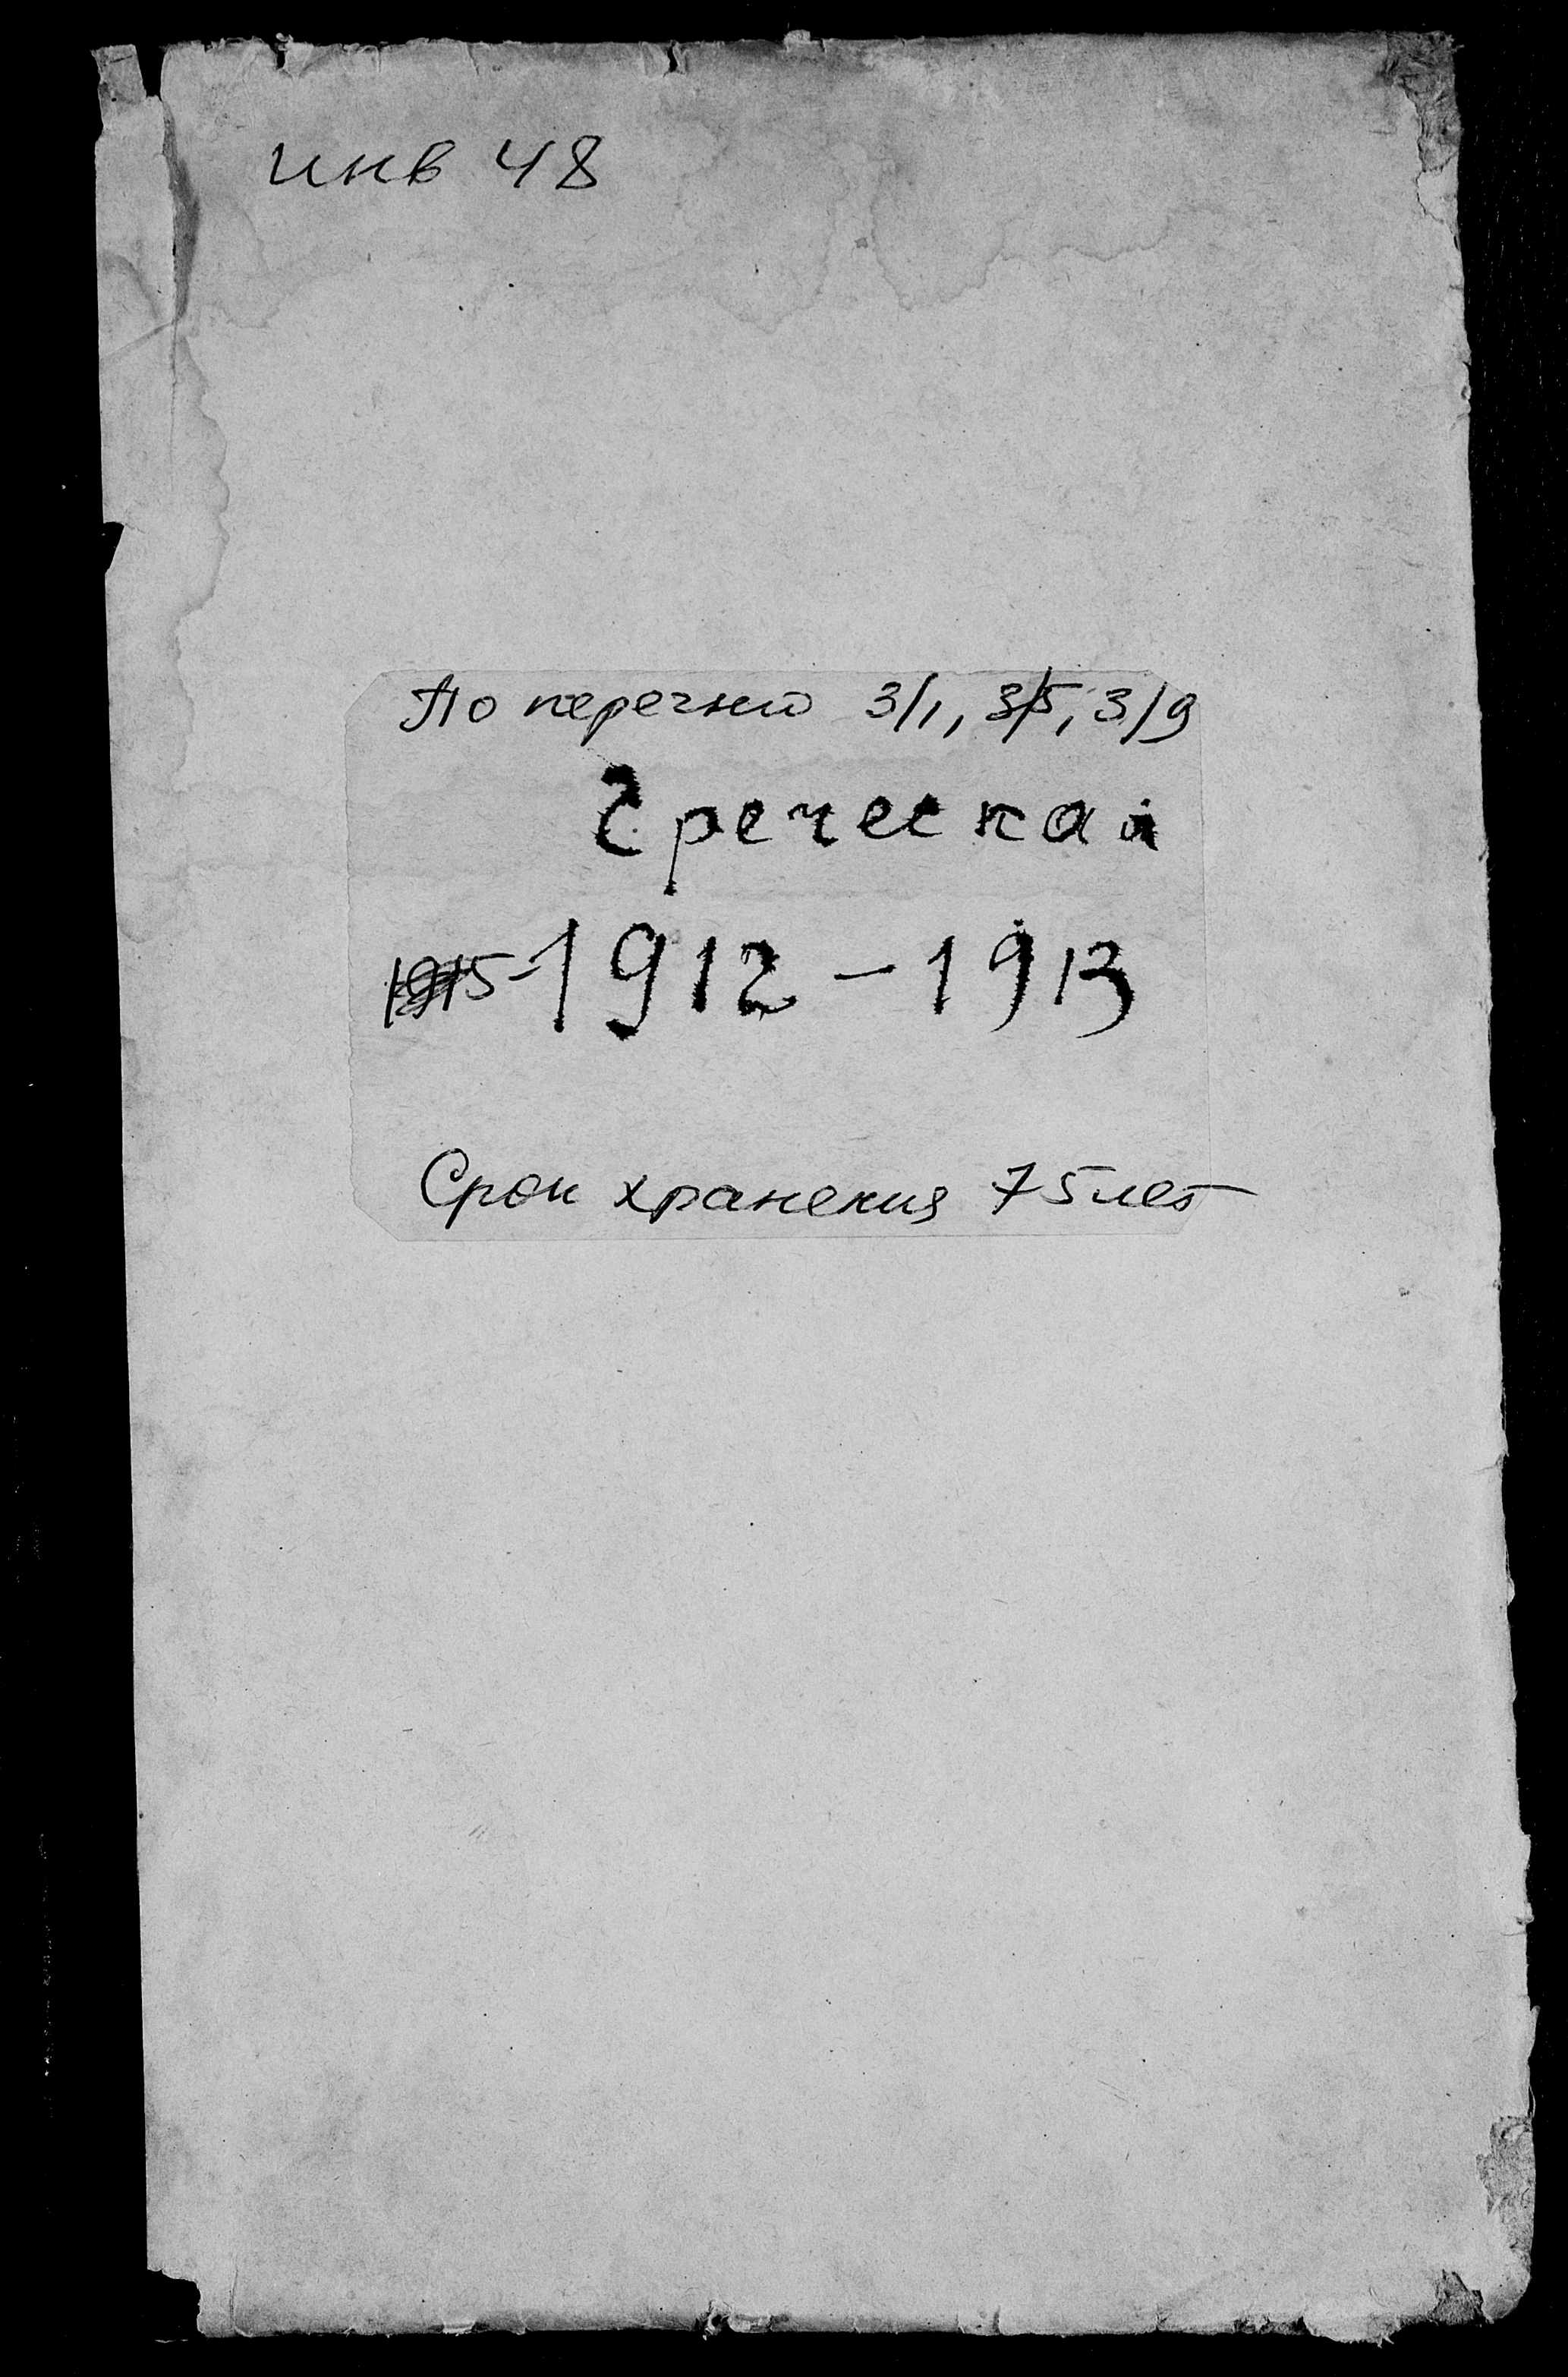 инв 48
По перечню 3/1, 3/5, 3/9
Греческая
1915-1912-1913
Срок хранения 75 лет